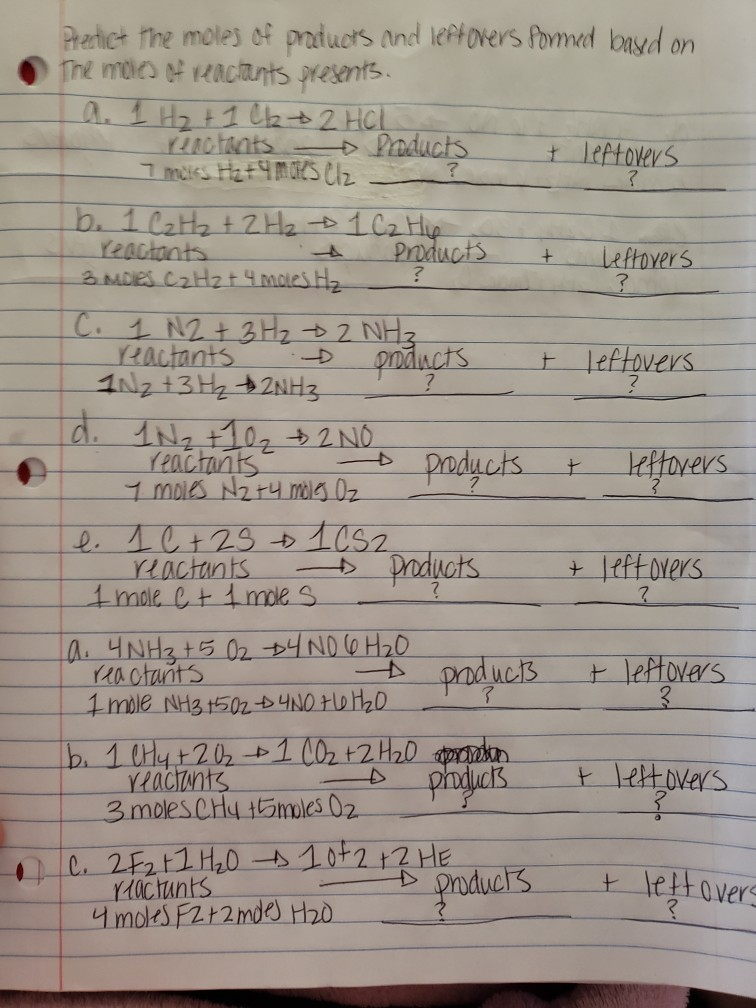 Predict the moles of products and leftovers formed based on
The moles of reactants presents.
a. 1 H2 + 1 Cl2 → 2 HCl
reactants → Products + leftovers
7 moles H2 + 4 moles Cl2 ? ?
b. 1 C2H2 + 2H2 → 1 C2H6
reactants → Products + Leftovers
3 moles C2H2 + 4 moles H2 ? ?
C. 1 N2 + 3H2 → 2 NH3
reactants → products + leftovers
1N2 + 3H2 → 2NH3 ? ?
d. 1N2 + 1O2 → 2 NO
reactants → products + leftovers
7 moles N2 + 4 moles O2 ? ?
e. 1 C + 2S → 1CS2
reactants → products + leftovers
1 mole C + 1 mole S ? ?
a. 4NH3 + 5 O2 → 4 NO 6 H2O
reactants → products + leftovers
1 mole NH3 + 5O2 → 4NO + 6H2O ? ?
b. 1 CH4 + 2O2 → 1 CO2 + 2H2O
reactants → products + leftovers
3 moles CH4 + 5 moles O2 ? ?
C. 2F2 + 1H2O → 1 Of2 + 2 HE
reactants → products + leftovers
4 moles F2 + 2 moles H2O ? ?